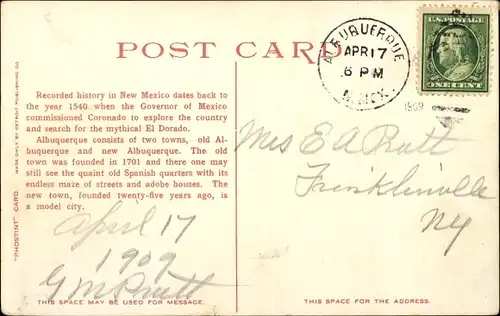 POST CARD
ALBUQUERQUE
APR 17
6 PM
N. MEX.
U.S. POSTAGE
ONE CENT
1909
"PHOSTINT" CARD. MADE ONLY BY DETROIT PUBLISHING CO.
Recorded history in New Mexico dates back to
the year 1540 when the Governor of Mexico
commissioned Coronado to explore the country
and search for the mythical El Dorado.
Albuquerque consists of two towns, old Al-
buquerque and new Albuquerque. The old
town was founded in 1701 and there one may
still see the quaint old Spanish quarters with its
endless maze of streets and adobe houses. The
new town, founded twenty-five years ago, is
a model city.
April 17
1909
G M Pratt
Mrs E A Pratt
Franklinville
NY
THIS SPACE MAY BE USED FOR MESSAGE.
THIS SPACE IS FOR THE ADDRESS.